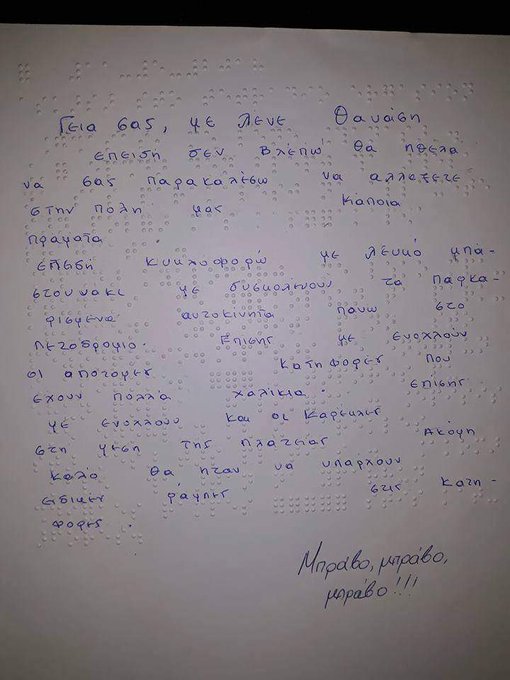 Γεια σας, με λενε Θαναση
επειδη δεν βλεπω θα ηθελα
να σας παρακαλεσω να αλλαξετε
στην πολη μας καποια
πραματα
επεδη κυκλοφορω με λευκό μπα-
στουνακι με δυσκολευουν τα παρκα-
ρισμενα αυτοκινητα πανω στο
πεζοδρομιο. Επισης με ενοχλουν
οι αποτομες κατηφορες που
εχουν πολλα χαλικια. επισης
με ενοχλουν και οι καρεκλες
στη μεση της πλατειας Ακομη
καλο θα ηταν να υπαρχουν
ειδικες ραμπες στις κατη-
φορες.
Μπράβο, μπράβο,
μπράβο!!!